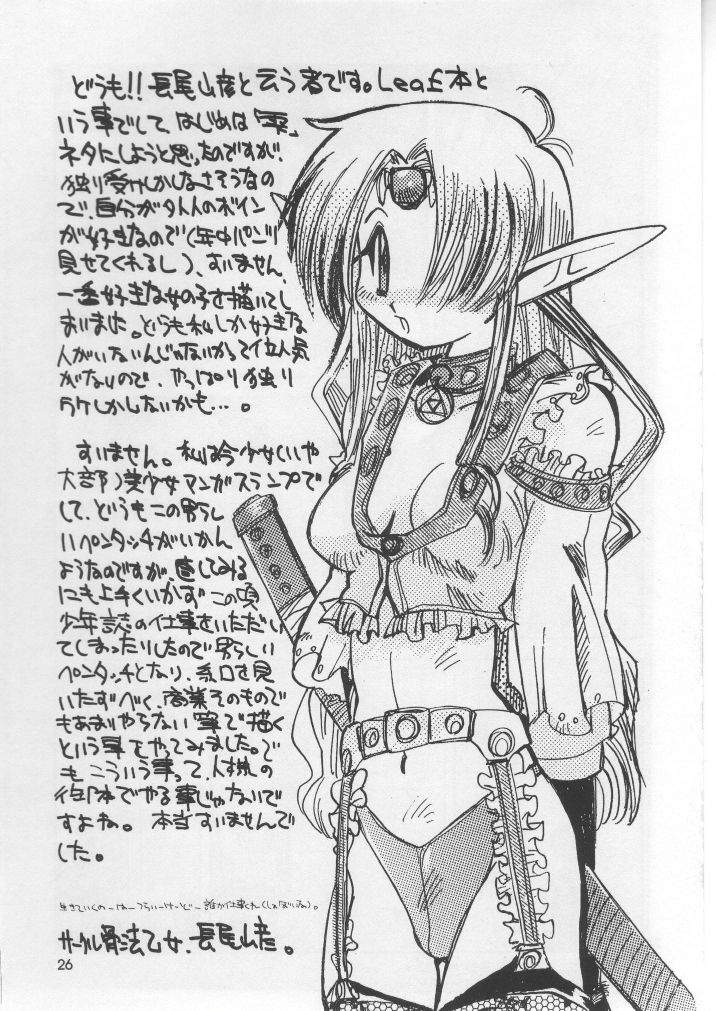 どうも!!長尾山彦と云う者です。Leaf本と
いう事でして、はじめは「雫」
ネタにしようと思ったのですが、
独り受けしかしなさそうなの
で、自分が外人のボイン
が好きなので(年中パンツ
見せてくれるし)、すいません、
一番好きな女の子を描いてし
まいました。どうも私しか好きな
人がいないんじゃないかって位人気
がないので、やっぱり独り
ウケしかしないかも…。
すいません。私は今少女(いや
大部)美少女マンガスランプで
して、どうもこの男らし
いペンタッチがいかん
ようなのですが直してみる
にも上手くいかず この頃
少年誌の仕事をいただい
てしまったりしたので男らしい
ペンタッチとなり、糸口を見
いだすべく、商業そのもので
もあまりやらない 筆で描く
という事をやってみました。で
もこういう事って、人様の
御本でやる事じゃないで
すよね。 本当すいませんで
した。
生きていくのーはーつらいーけーどー 誰か仕事くれー
サークル骨法乙女、長尾山彦。
26